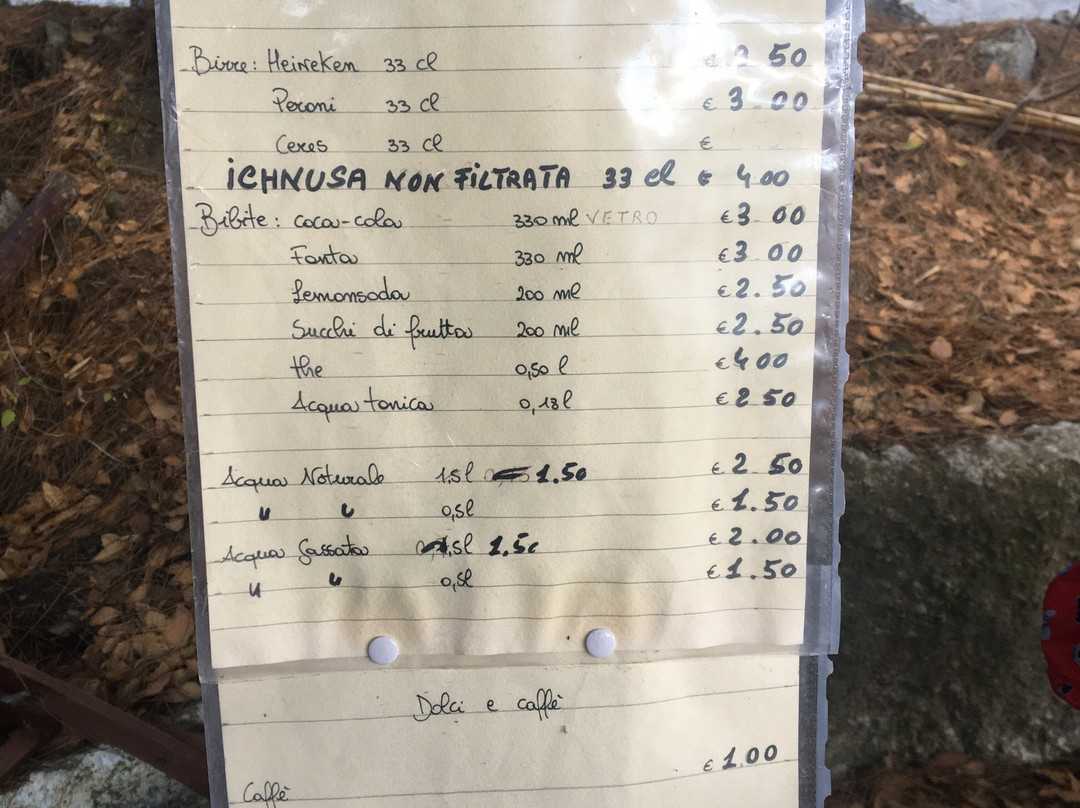 Birre: Heineken 33 cl € 2 50
Peroni 33 cl € 3.00
Ceres 33 cl €
ICHNUSA NON FILTRATA 33 cl € 4.00
Bibite: coca-cola 330 ml VETRO € 3.00
Fanta 330 ml € 3.00
Lemonsoda 200 ml € 2.50
Succhi di frutta 200 ml € 2.50
the 0,50 l € 4.00
Acqua tonica 0,18 l € 2 50
Acqua Naturale 1,5l 1.50 € 2.50
" " 0,5l € 1.50
Acqua Gassata ,5l 1.5 € 2.00
" " 0,5l € 1.50
Dolci e caffè
Caffè € 1.00